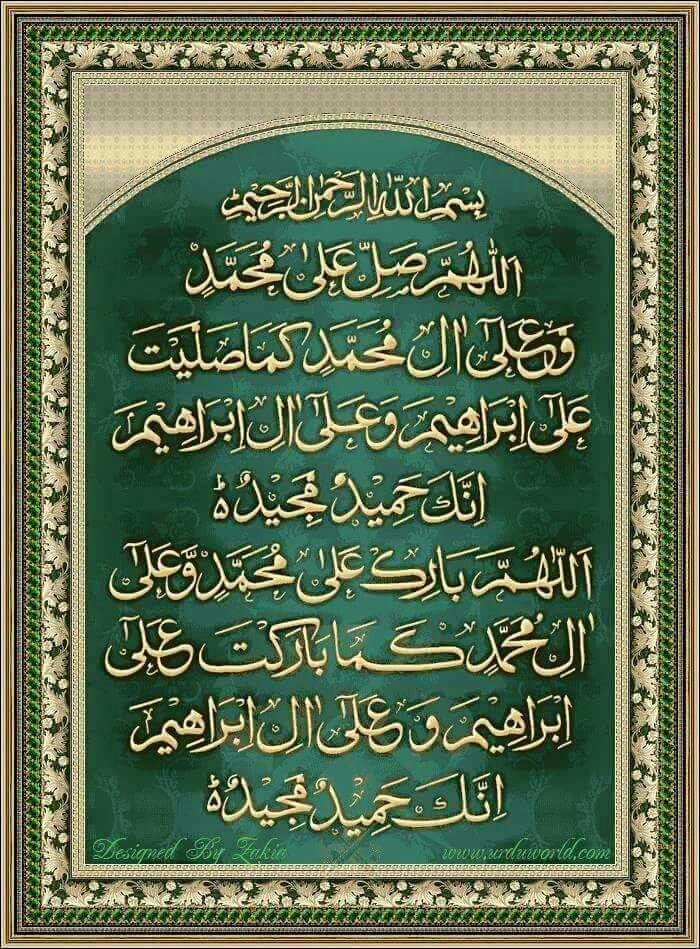 بِسْمِ اللّٰهِ الرَّحْمٰنِ الرَّحِيْمِ
اَللّٰهُمَّ صَلِّ عَلٰى مُحَمَّدٍ
وَّعَلٰٓى اٰلِ مُحَمَّدٍ كَمَا صَلَّيْتَ
عَلٰٓى اِبْرَاهِيْمَ وَعَلٰٓى اٰلِ اِبْرَاهِيْمَ
اِنَّكَ حَمِيْدٌ مَّجِيْدٌ ؕ
اَللّٰهُمَّ بَارِكْ عَلٰى مُحَمَّدٍ وَّعَلٰٓى
اٰلِ مُحَمَّدٍ كَمَا بَارَكْتَ عَلٰٓى
اِبْرَاهِيْمَ وَعَلٰٓى اٰلِ اِبْرَاهِيْمَ
اِنَّكَ حَمِيْدٌ مَّجِيْدٌ ؕ
Designed By Zakia www.urduworld.com